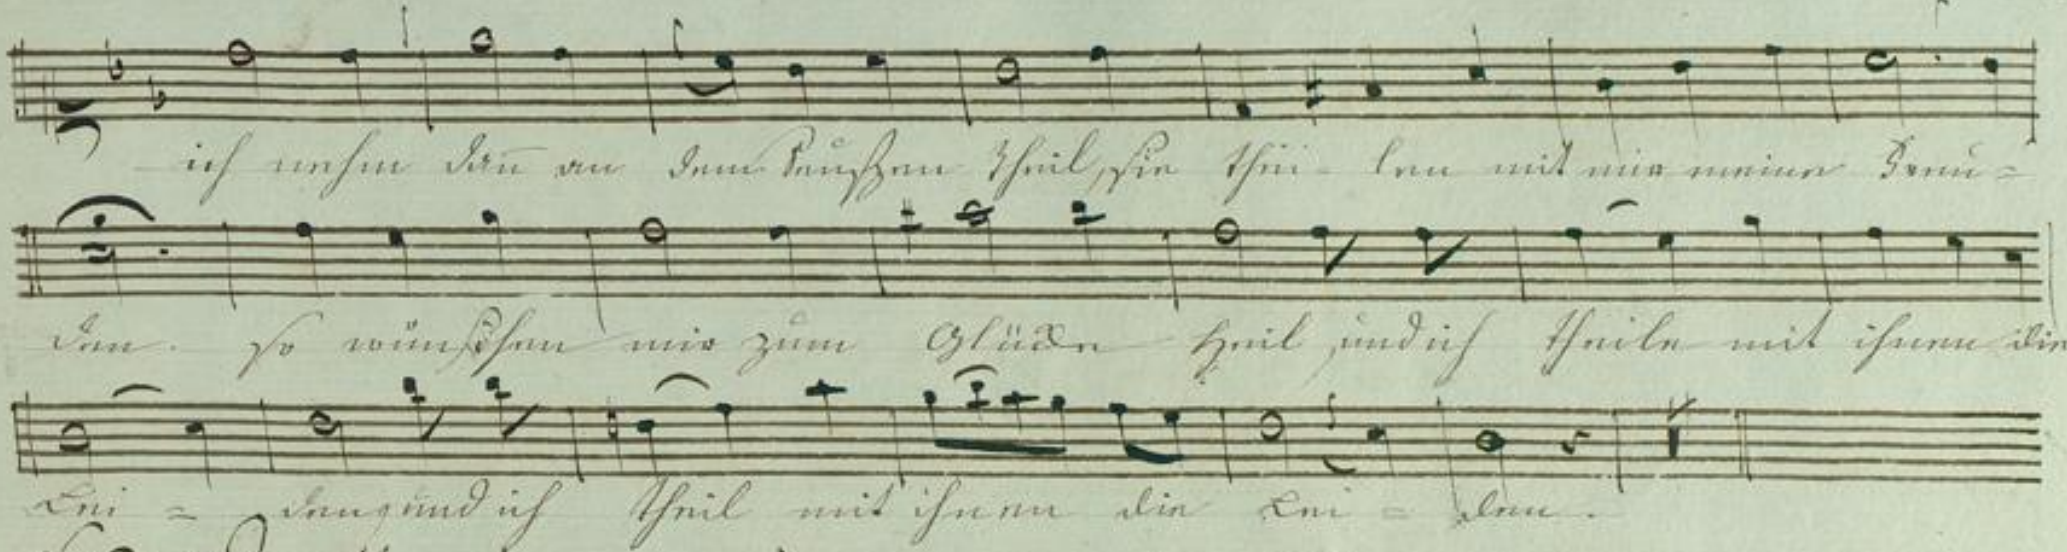 ich nehm dañ an dem Seufzen Theil, sie thei - len mit mir meine Freu =
den. so wünschen mir zum Glücke Heil und ich theile mit ihnen die
Lei = den und ich theil mit ihnen die Lei = den.